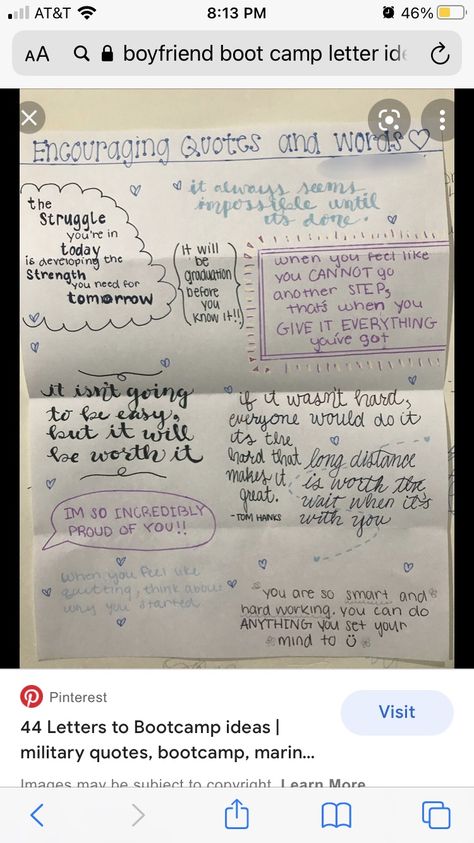 AT&T 8:13 PM 46%
AA boyfriend boot camp letter ide
Encouraging Quotes and Words
the
Struggle
you're in
today
is developing the
Strength
you need for
tomorrow
it always seems
impossible until
it's done.
It will
be
graduation
before
you
know it!!
when you feel like
you CANNOT go
another STEP,
thats when you
GIVE IT EVERYTHING
you've got
it isn't going
to be easy,
but it will
be worth it
if it wasn't hard,
everyone would do it
it's the
hard that
makes it
great.
-TOM HANKS
long distance
is worth the
wait when it's
with you
IM SO INCREDIBLY
PROUD OF YOU!!
When you feel like
quitting, think about
why you started
you are so smart and
hard working. you can do
ANYTHING you set your
mind to
Pinterest
Visit
44 Letters to Bootcamp ideas |
military quotes, bootcamp, marin...
Images may be subject to copyright. Learn More